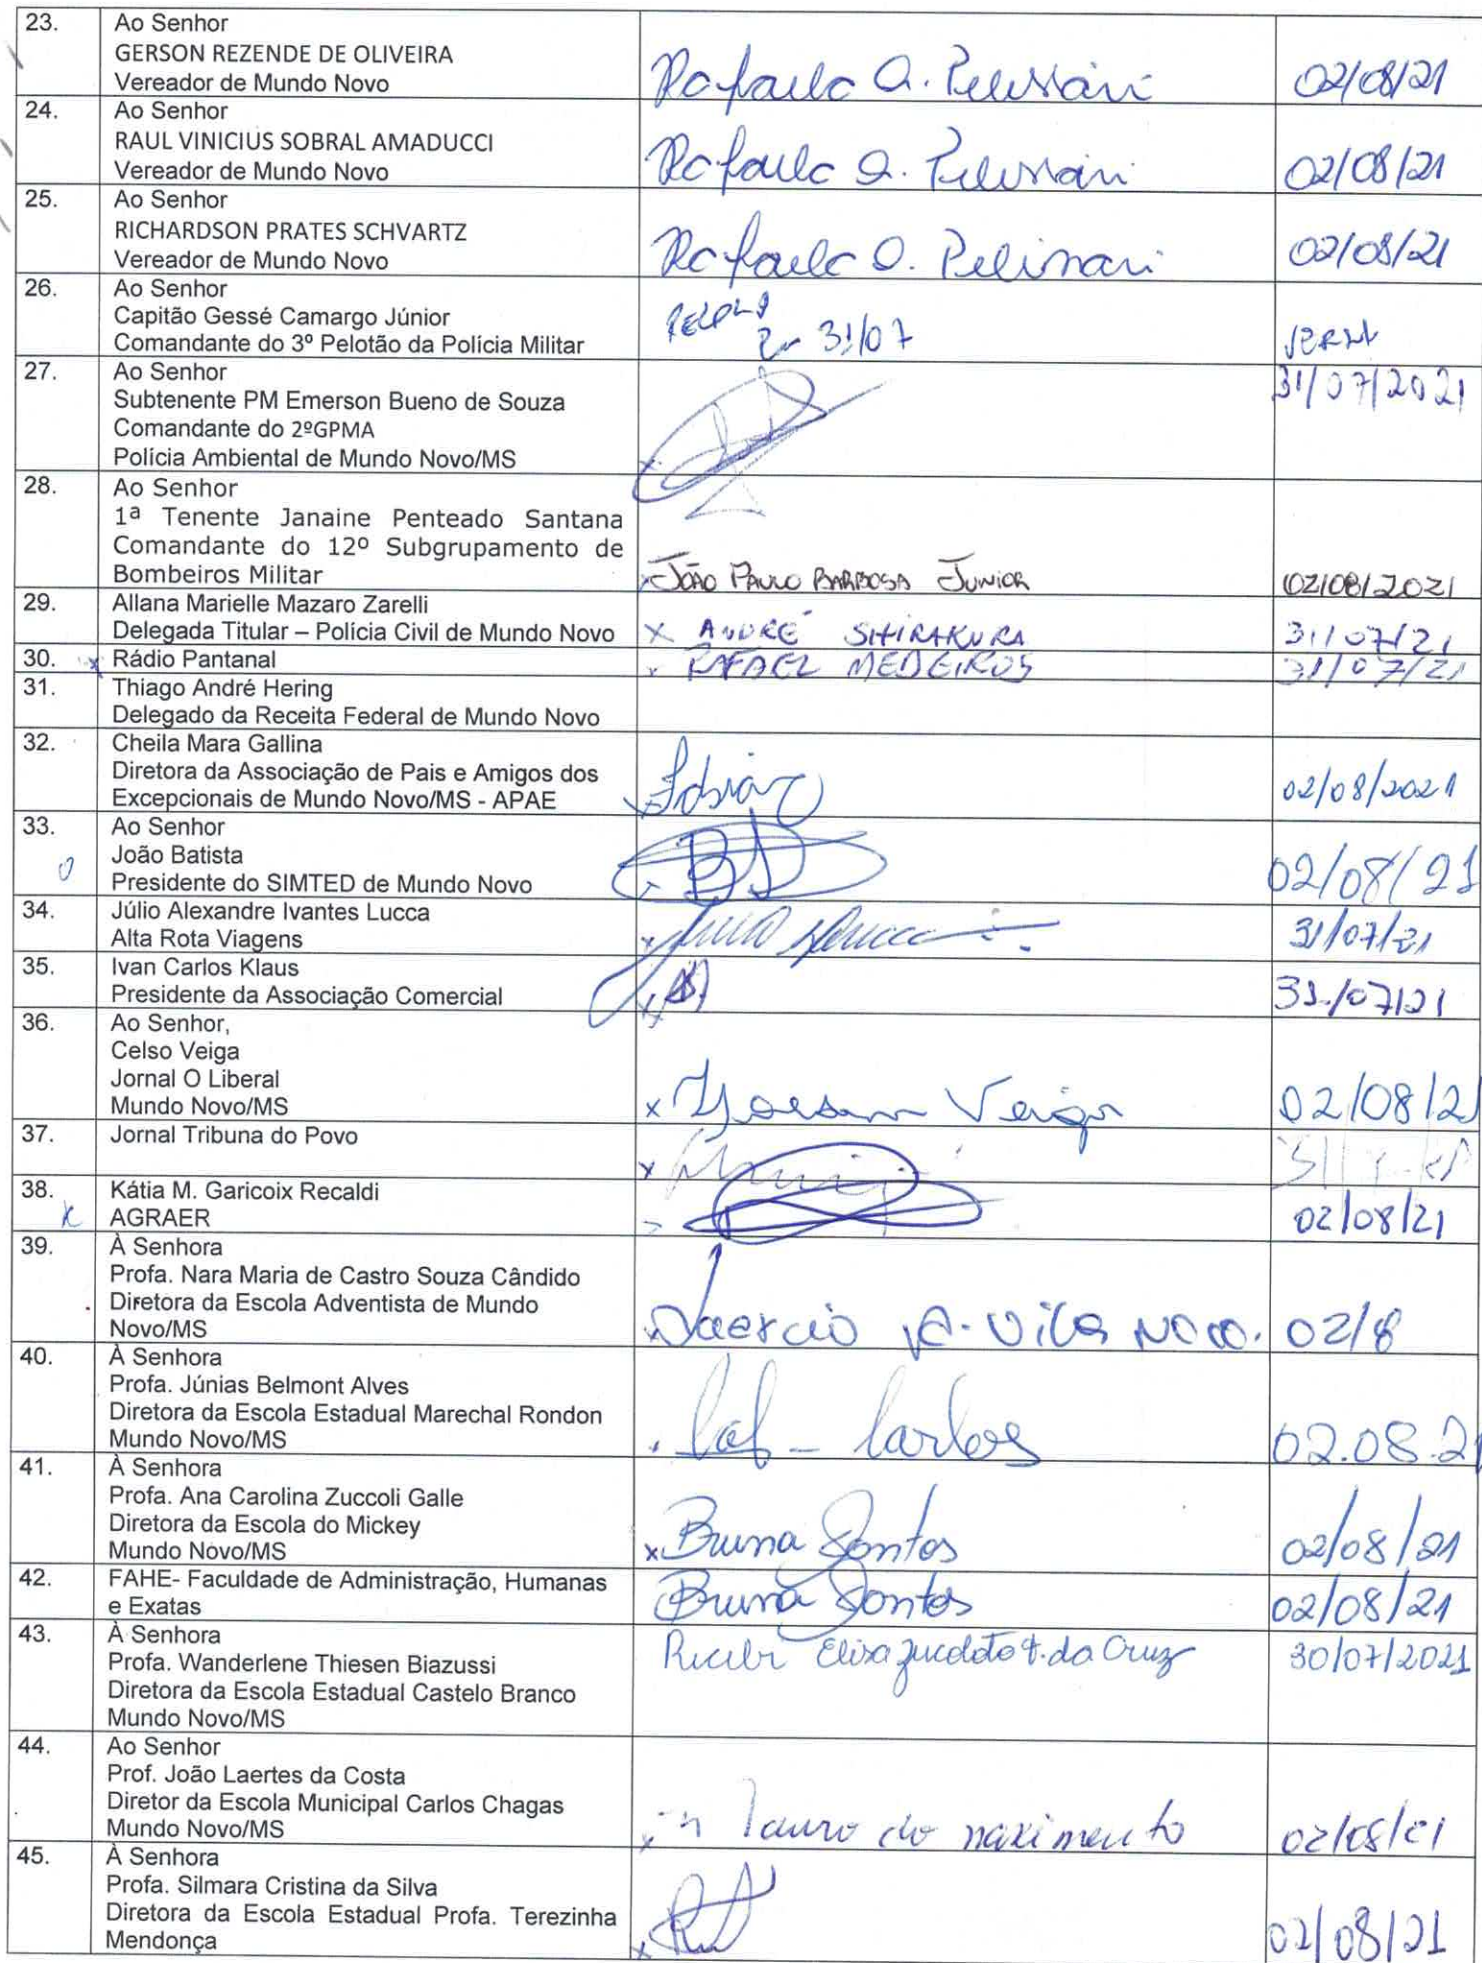 23.
Ao Senhor
GERSON REZENDE DE OLIVEIRA
Vereador de Mundo Novo
02/08/21
24.
Ao Senhor
RAUL VINICIUS SOBRAL AMADUCCI
Vereador de Mundo Novo
02/08/21
25.
Ao Senhor
RICHARDSON PRATES SCHVARTZ
Vereador de Mundo Novo
02/08/21
26.
Ao Senhor
Capitão Gessé Camargo Júnior
Comandante do 3º Pelotão da Polícia Militar
31/07
27.
Ao Senhor
Subtenente PM Emerson Bueno de Souza
Comandante do 2ºGPMA
Polícia Ambiental de Mundo Novo/MS
31/07/2021
28.
Ao Senhor
1ª Tenente Janaine Penteado Santana
Comandante do 12º Subgrupamento de
Bombeiros Militar
JOÃO PAULO BARBOSA JUNIOR
02/08/2021
29.
Allana Marielle Mazaro Zarelli
Delegada Titular – Polícia Civil de Mundo Novo
x ANDRÉ SHIRAKURA
31/07/21
30.
x Rádio Pantanal
RAFAEL MEDEIROS
31/07/21
31.
Thiago André Hering
Delegado da Receita Federal de Mundo Novo
32.
Cheila Mara Gallina
Diretora da Associação de Pais e Amigos dos
Excepcionais de Mundo Novo/MS - APAE
02/08/2021
33.
Ao Senhor
João Batista
Presidente do SIMTED de Mundo Novo
02/08/21
34.
Júlio Alexandre Ivantes Lucca
Alta Rota Viagens
31/07/21
35.
Ivan Carlos Klaus
Presidente da Associação Comercial
31/07/21
36.
Ao Senhor,
Celso Veiga
Jornal O Liberal
Mundo Novo/MS
x Veiga
02/08/21
37.
Jornal Tribuna do Povo
x
38.
Kátia M. Garicoix Recaldi
AGRAER
02/08/21
39.
À Senhora
Profa. Nara Maria de Castro Souza Cândido
Diretora da Escola Adventista de Mundo
Novo/MS
Laercio A. Vila Nova.
02/8
40.
À Senhora
Profa. Júnias Belmont Alves
Diretora da Escola Estadual Marechal Rondon
Mundo Novo/MS
Carlos
02.08.21
41.
À Senhora
Profa. Ana Carolina Zuccoli Galle
Diretora da Escola do Mickey
Mundo Novo/MS
x Bruna Santos
02/08/21
42.
FAHE- Faculdade de Administração, Humanas
e Exatas
Bruna Santos
02/08/21
43.
À Senhora
Profa. Wanderlene Thiesen Biazussi
Diretora da Escola Estadual Castelo Branco
Mundo Novo/MS
Recebi Elisa da Cruz
30/07/2021
44.
Ao Senhor
Prof. João Laertes da Costa
Diretor da Escola Municipal Carlos Chagas
Mundo Novo/MS
Lauro do nascimento
02/08/21
45.
À Senhora
Profa. Silmara Cristina da Silva
Diretora da Escola Estadual Profa. Terezinha
Mendonça
02/08/21